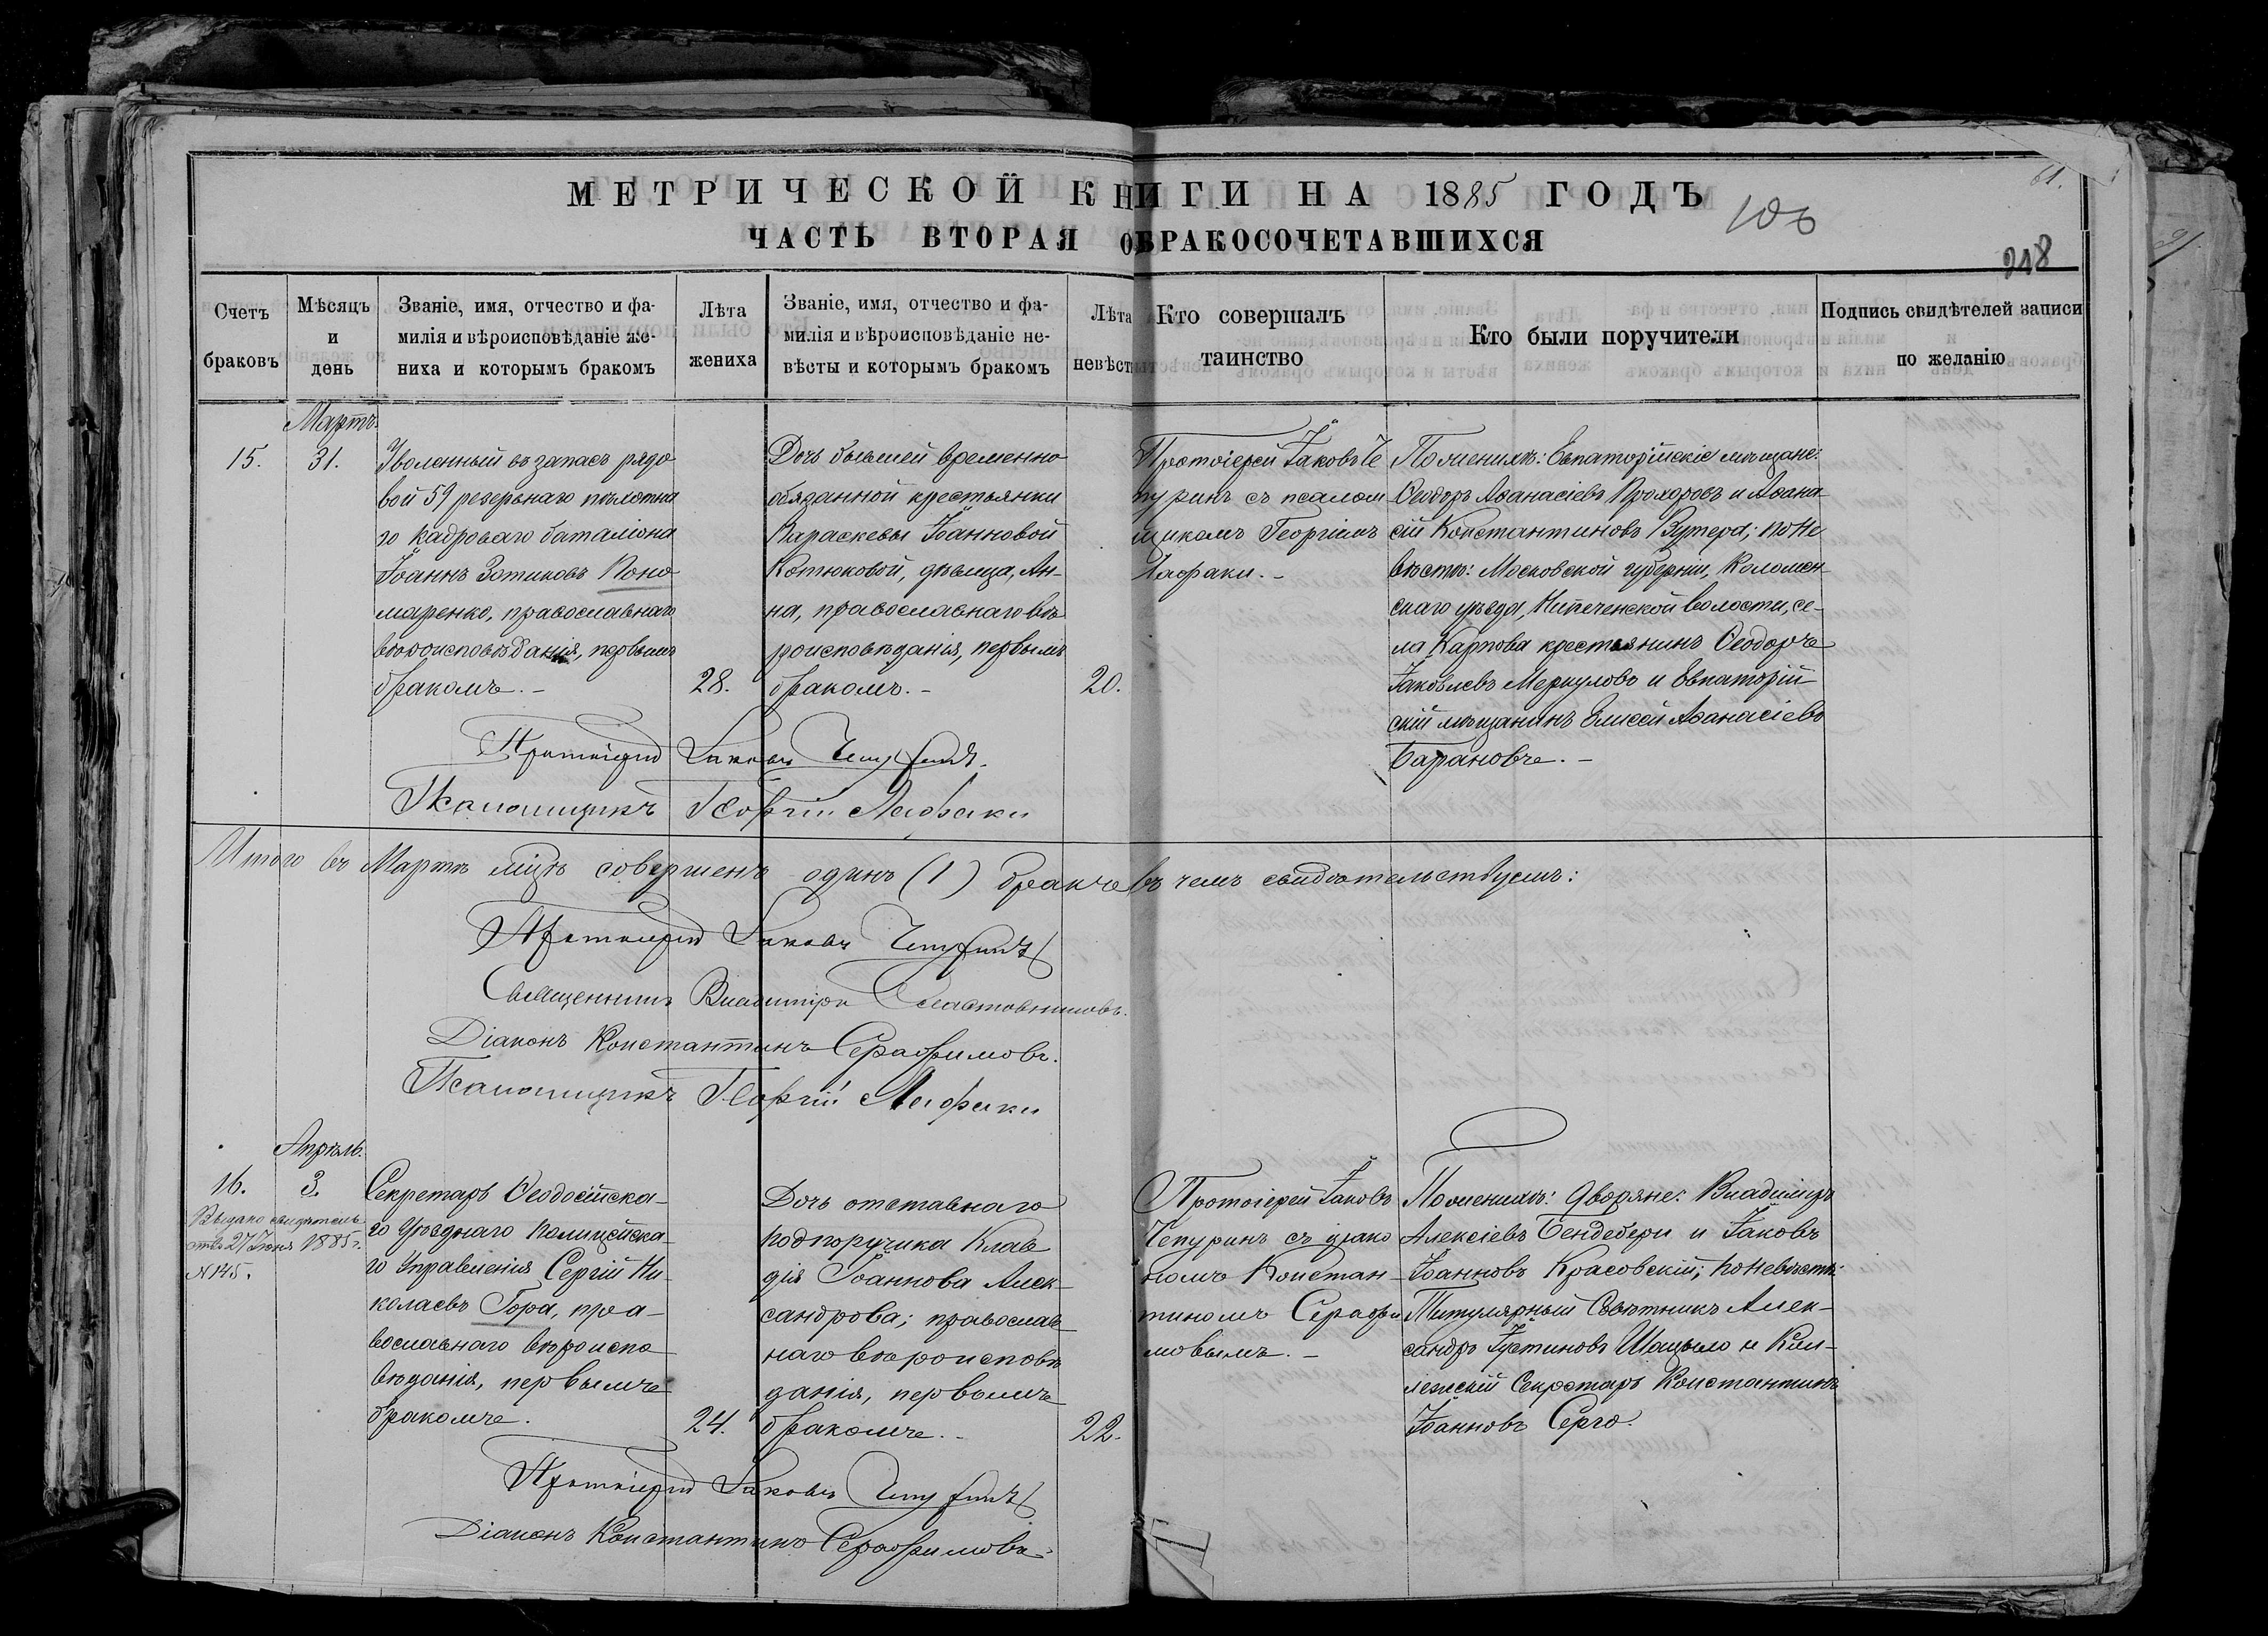 МЕТРИЧЕСКОЙ КНИГИ НА 1885 ГОДЪ
61.
106
ЧАСТЬ ВТОРАЯ О БРАКОСОЧЕТАВШИХСЯ
218
Счетъ браковъ
Мѣсяцъ и день
Званіе, имя, отчество и фа-
милія и вѣроисповѣданіе же-
ниха и которымъ бракомъ
Лѣта жениха
Званіе, имя, отчество и фа-
милія и вѣроисповѣданіе не-
вѣсты и которымъ бракомъ
Лѣта невѣсты
Кто совершалъ
таинство
Кто были поручители
Подпись свидѣтелей записи
по желанію
Мартъ
15.
31.
Уволенный въ запасъ рядо
вой 59 резервнаго пѣхотна
го кадроваго баталіона
Іоаннъ Зотиковъ Поно
маренко, православнаго
вѣроисповѣданія, первымъ
бракомъ. -
28.
Дочь бывшей временно
обязанной крестьянки
Параскевы Іоанновой
Котюковой, дѣвица, Ан-
на, православнаго вѣ
роисповѣданія, первымъ
бракомъ. -
20.
Протоіерей Іаковъ Че
пуринъ съ псалом
щикомъ Георгіемъ
Лафаки. -
По женихѣ: Евпаторійскіе мѣщане:
Ѳеодоръ Аѳанасіевъ Прохоровъ и Аѳана
сій Константиновъ Кутера; по не
вѣстѣ: Московской губерніи, Коломен-
скаго уѣзда, волости, се-
ла Карпова крестьянинъ Ѳеодоръ
Іаковлевъ Меркуловъ и Евпаторій
скій мѣщанинъ Елисей Аѳанасіевъ
Барановъ. -
Протоіерей Іаковъ Чепуринъ.
Псаломщикъ Георгій Лафаки
Итого въ Мартѣ мцѣ совершенъ одинъ (1) бракъ въ чемъ свидѣтельствуемъ:
Протоіерей Іаковъ Чепуринъ
Священникъ Владиміръ Сластовниковъ.
Діаконъ Константинъ Серафимовъ.
Псаломщикъ Георгій Лафаки
Апрѣль.
16.
3.
Выдано свидѣтель
ство 27 Іюня 1885 г.
N 145.
Секретарь Ѳеодосійска-
го Уѣзднаго Полицейска-
го Управленія Сергій Ни-
колаевъ Гора, пра-
вославнаго вѣроиспо
вѣданія, первымъ
бракомъ.
24.
Дочь отставнаго
подпоручика Клав
дія Іоаннова Алек-
сандрова; православ
наго вѣроисповѣ
данія, первымъ
бракомъ. -
22.
Протоіерей Іаковъ
Чепуринъ съ діако
номъ Констан-
тиномъ Серафи
мовымъ. -
По женихѣ: Дворяне: Владиміръ
Алексіевъ Бендебери и Іаковъ
Іоанновъ Красовскій; по невѣстѣ:
Титулярный Совѣтникъ Алек-
сандръ Іустиновъ Шацыло и Кол-
лежскій Секретарь Константинъ
Іоанновъ Серго.
Протоіерей Іаковъ Чепуринъ
Діаконъ Константинъ Серафимовъ.